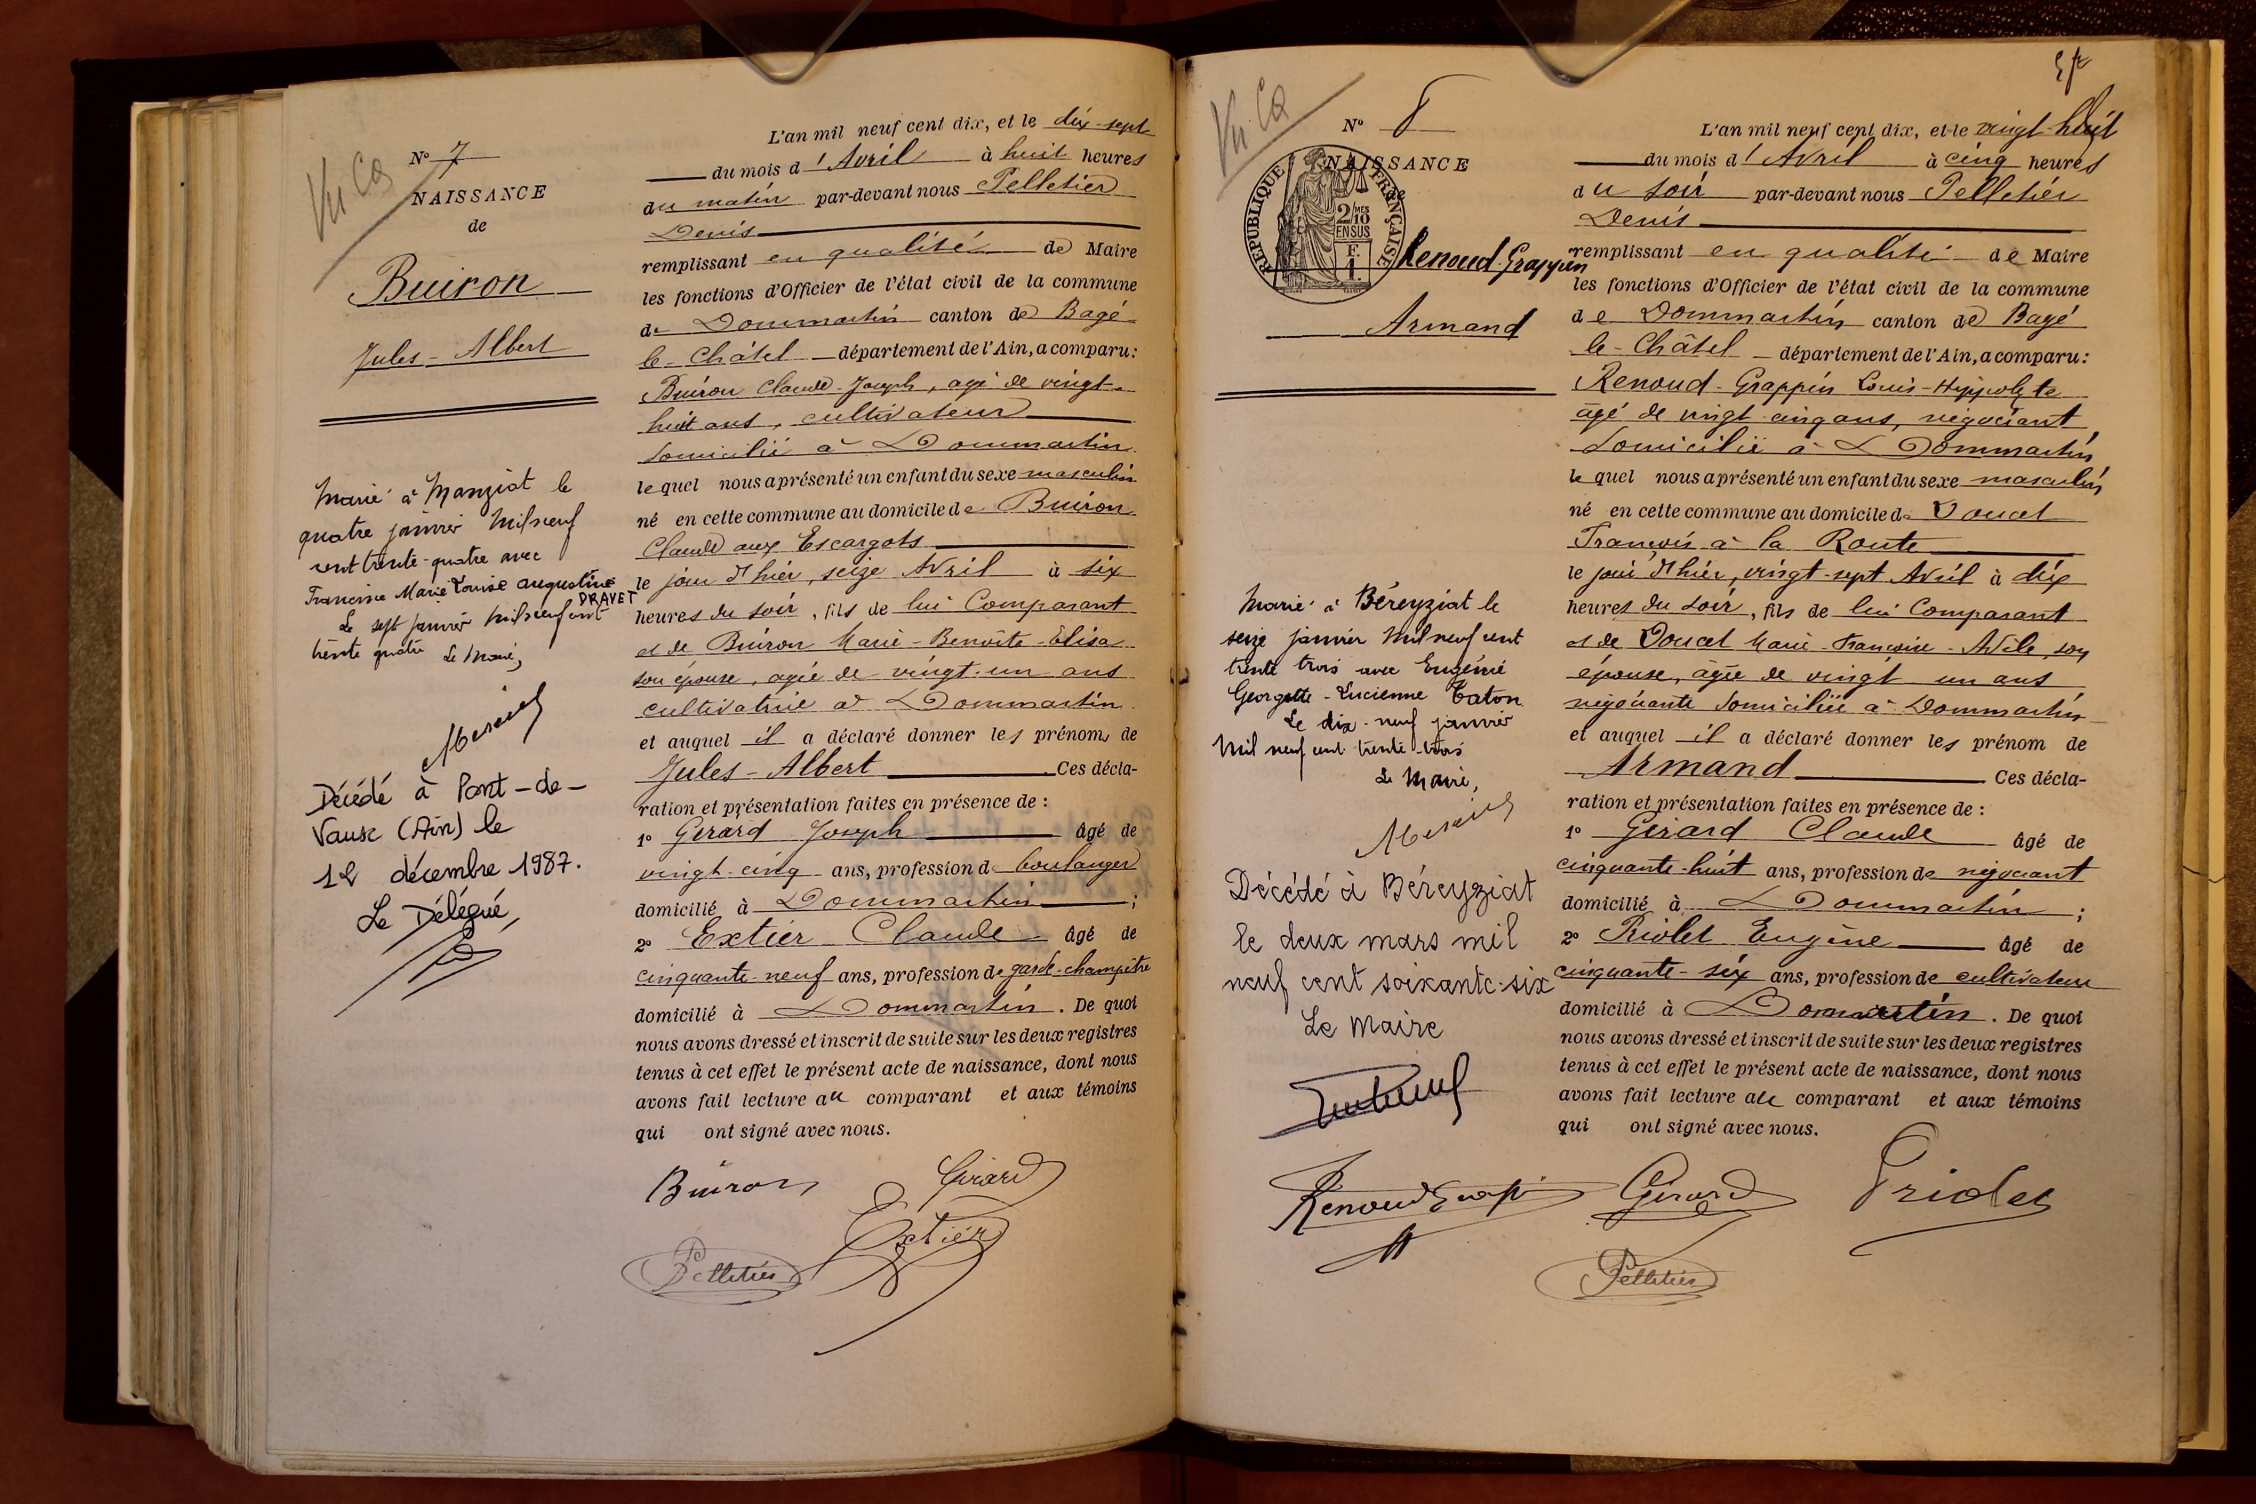 Vu Ca
N° 7
NAISSANCE
de
Buiron
Jules-Albert
Marié à Manziat le
quatre janvier Mil neuf
cent trente-quatre avec
Francine Marie Louise Augustine
DRAVET
Le sept janvier mil neuf cent
trente quatre Le Maire,
Décédé à Pont-de-
Vaux (Ain) le
12 décembre 1987.
Le Délégué,
L'an mil neuf cent dix, et le dix-sept
du mois d'Avril à huit heures
du matin par-devant nous Pelletier
Denis
remplissant en qualité de Maire
les fonctions d'Officier de l'état civil de la commune
de Dommartin canton de Bagé
le-Châtel département de l'Ain, a comparu:
Buiron Claude-Joseph, agé de vingt-
huit ans, cultivateur
domicilié à Dommartin
lequel nous a présenté un enfant du sexe masculin
né en cette commune au domicile de Buiron
Claude aux Escargots
le jour d'hier, seize Avril à six
heures du soir, fils de lui Comparant
et de Buiron Marie-Benoîte-Elisa
son épouse, agée de vingt-un ans
cultivatrice à Dommartin
et auquel il a déclaré donner les prénoms de
Jules-Albert Ces décla-
ration et présentation faites en présence de :
1° Gérard Joseph âgé de
vingt-cinq ans, profession de boulanger
domicilié à Dommartin ;
2° Extier Claude âgé de
cinquante-neuf ans, profession de garde-champêtre
domicilié à Dommartin. De quoi
nous avons dressé et inscrit de suite sur les deux registres
tenus à cet effet le présent acte de naissance, dont nous
avons fait lecture au comparant et aux témoins
qui ont signé avec nous.
Buiron Gérard
Extier
Pelletier
Vu Ca
N° 8
NAISSANCE
de
RÉPUBLIQUE FRANÇAISE
2/10 MES
EN SUS
F
1
Renoud-Grappin
Armand
Marié à Béreyziat le
seize janvier Mil neuf cent
trente trois avec Eugénie
Georgette-Lucienne Caton
Le dix-neuf janvier
Mil neuf cent trente-trois
Le Maire,
Décédé à Béreyziat
le deux mars mil
neuf cent soixante-six
Le Maire
L'an mil neuf cent dix, et le vingt-huit
du mois d'Avril à cinq heures
du soir par-devant nous Pelletier
Denis
remplissant en qualité de Maire
les fonctions d'Officier de l'état civil de la commune
de Dommartin canton de Bagé
le-Châtel département de l'Ain, a comparu:
Renoud-Grappin Louis-Hyppolyte
âgé de vingt-cinq ans, négociant
domicilié à Dommartin
lequel nous a présenté un enfant du sexe masculin
né en cette commune au domicile de Doucet
François à la Route
le jour d'hier, vingt-sept Avril à dix
heures du soir, fils de lui Comparant
et de Doucet Marie-Françoise-Adèle, son
épouse, âgée de vingt un ans
négociante domiciliée à Dommartin
et auquel il a déclaré donner les prénom de
Armand Ces décla-
ration et présentation faites en présence de :
1° Gérard Claude âgé de
cinquante-huit ans, profession de négociant
domicilié à Dommartin ;
2° Priolet Eugène âgé de
cinquante-six ans, profession de cultivateur
domicilié à Dommartin. De quoi
nous avons dressé et inscrit de suite sur les deux registres
tenus à cet effet le présent acte de naissance, dont nous
avons fait lecture au comparant et aux témoins
qui ont signé avec nous.
Renoud Grappin Gérard Priolet
Pelletier